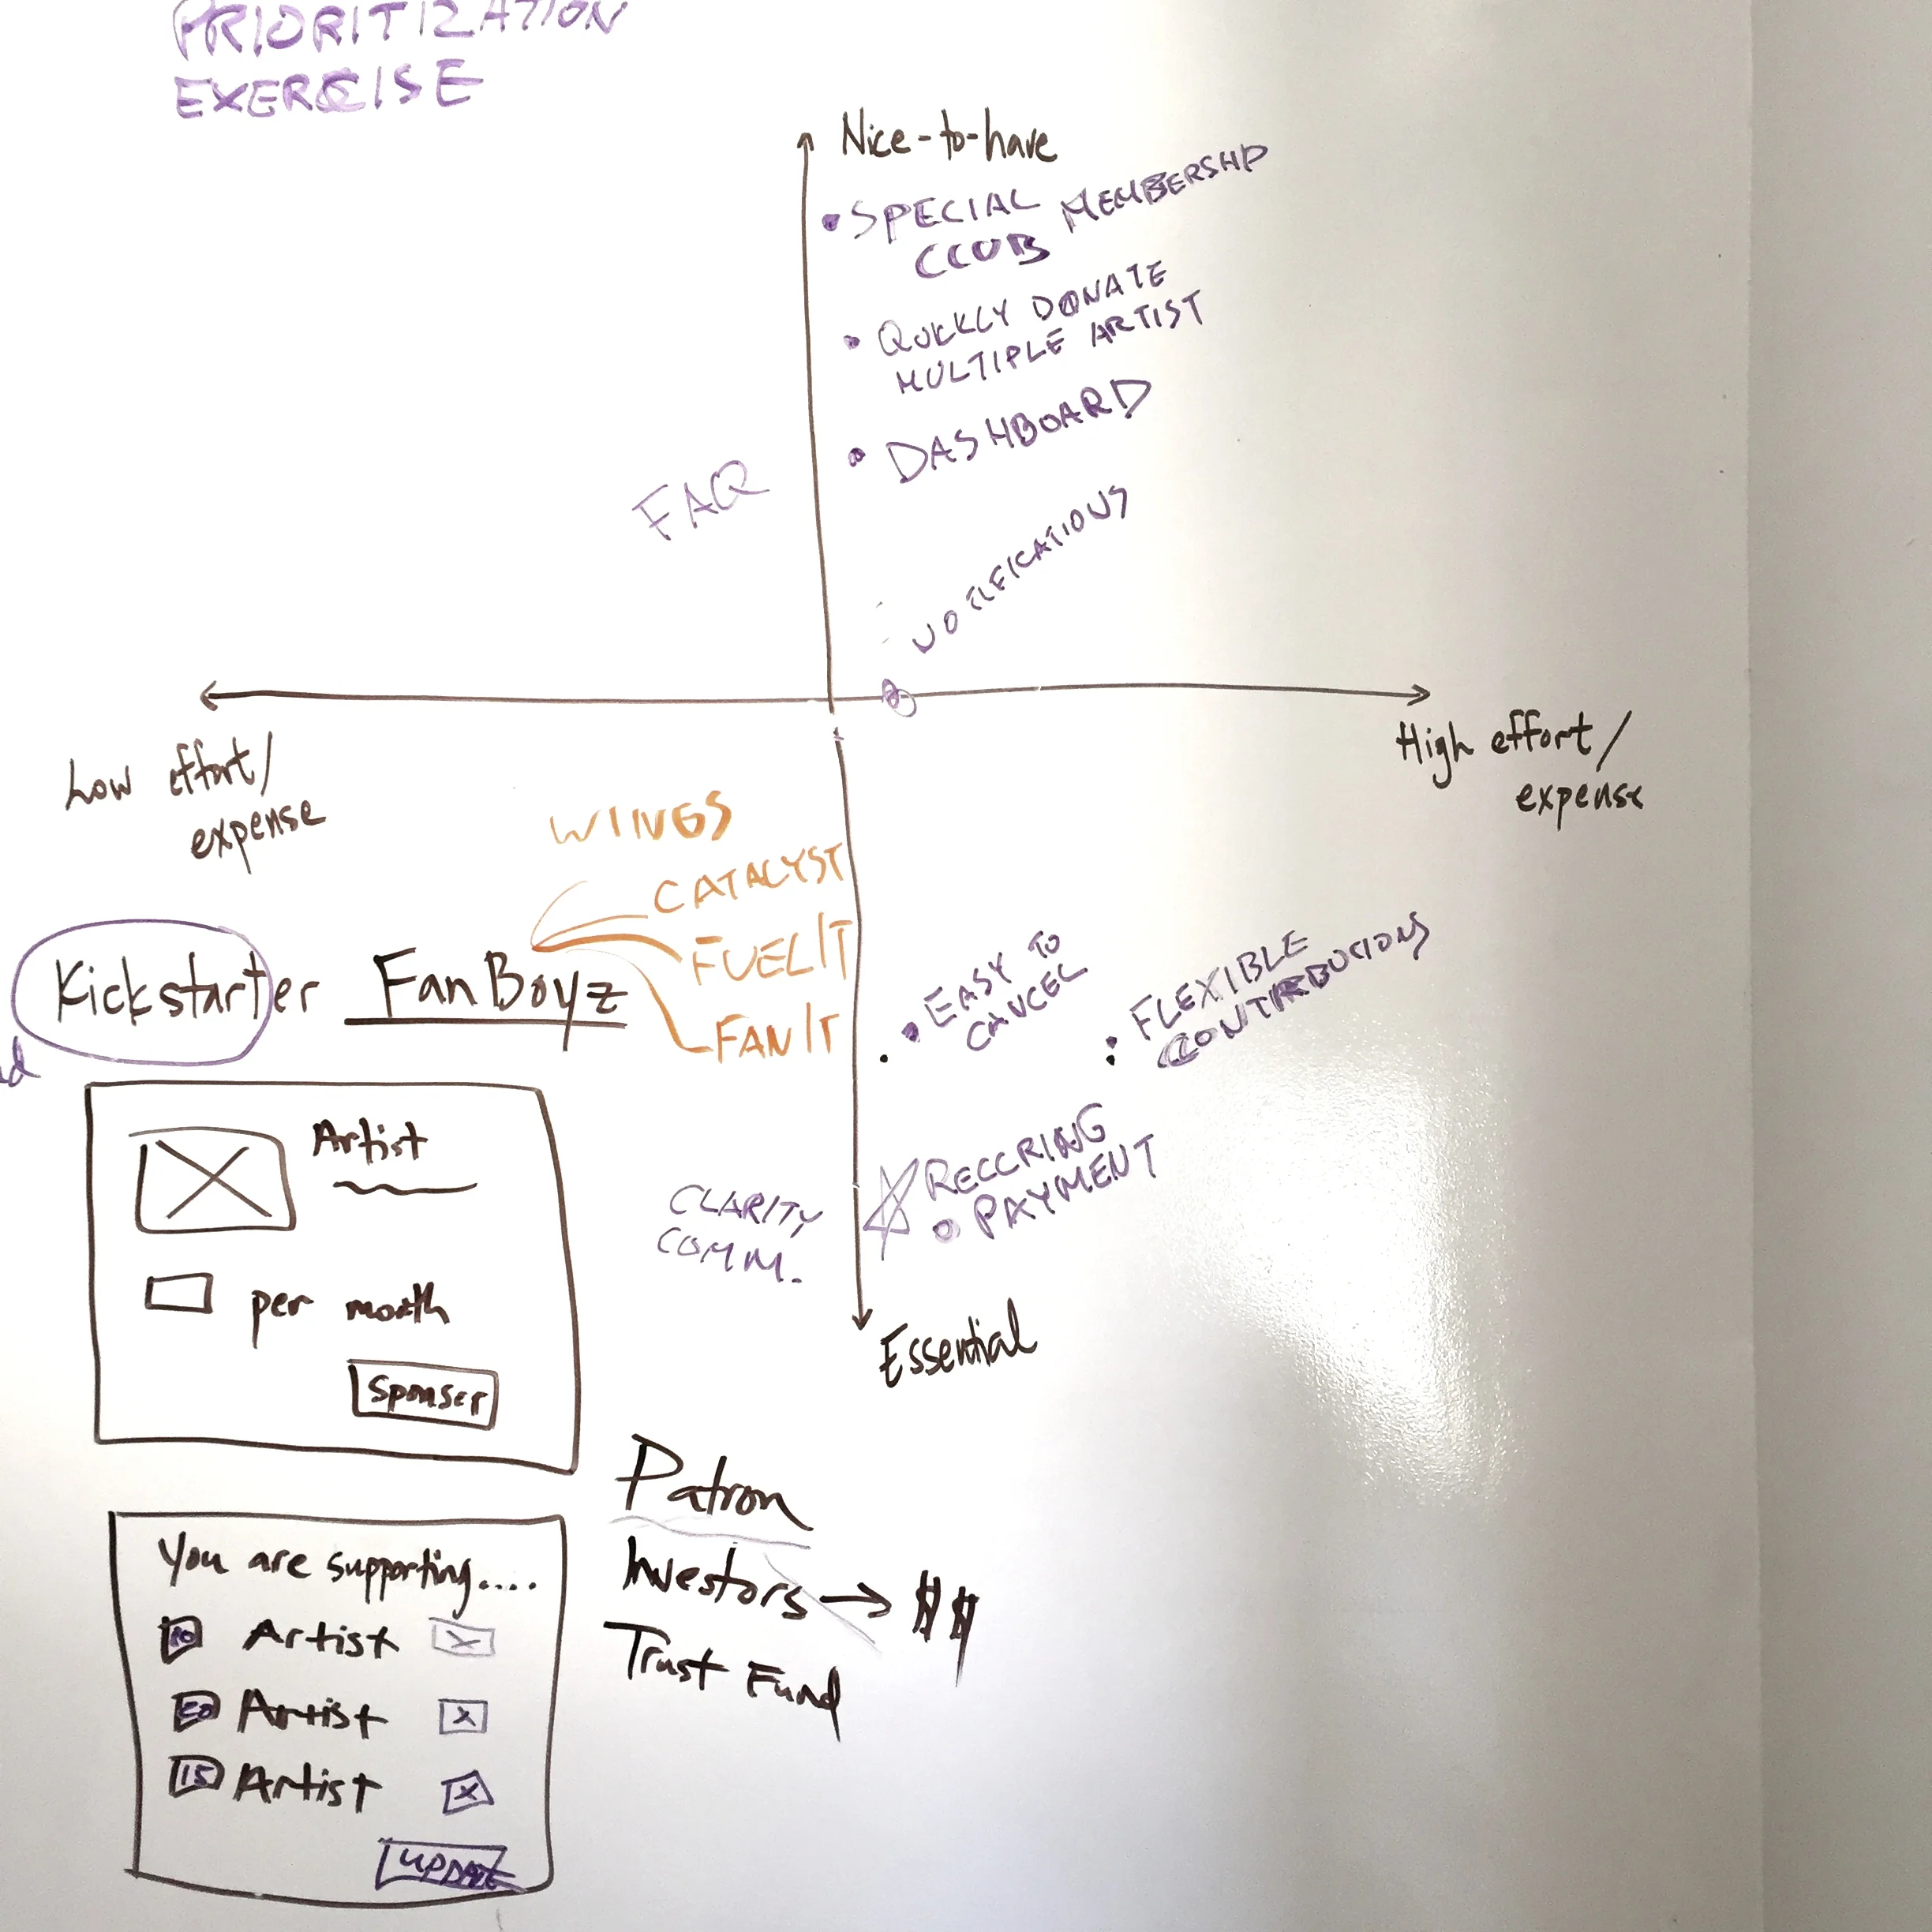 PRIORITIZATION
EXERCISE
Nice-to-have
• SPECIAL MEMBERSHP
CLUB
• QUICKLY DONATE
MULTIPLE ARTIST
• DASHBOARD
FAQ
NOTIFICATIONS
Low effort/
expense
High effort/
expense
WINGS
CATALYST
FUELIT
FANIT
Kickstarter FanBoyz
• EASY TO
CANCEL
• FLEXIBLE
CONTRIBUTIONS
RECCRING
PAYMENT
CLARITY
COMM.
Essential
Artist
per month
Sponser
Patron
Investors → $$
Trust Fund
You are supporting....
10 Artist X
20 Artist X
15 Artist X
UPDATE